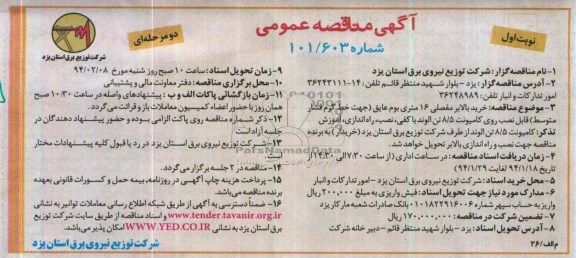 آگهی مناقصه عمومی
شماره ۱۰۱/۶۰۳
نوبت اول
دو مرحله‌ای
شرکت توزیع برق استان یزد
۱- نام مناقصه گزار: شرکت توزیع نیروی برق استان یزد
۲- آدرس مناقصه گزار: یزد - بلوار شهید منتظر قائم تلفن: ۱۴-۳۶۲۴۳۱۱۱
امور تدارکات و انبار تلفن: ۳۶۲۴۸۹۸۹
۳- موضوع مناقصه: خرید بالابر مفصلی ۱۶ متری بوم عایق (جهت خط گرم فشار
متوسط) قابل نصب روی کامیونت ۸/۵ تن الوند با کفی، نصب، راه اندازی، آموزش
تذکر: کامیونت ۸/۵ تن الوند از طرف شرکت توزیع برق استان یزد (خریدار) به برنده
مناقصه جهت نصب و راه اندازی بالابر تحویل خواهد شد.
۴- زمان دریافت اسناد مناقصه: در ساعات اداری (از ساعت ۷:۳۰ الی ۱۴:۳۰ از
تاریخ ۹۴/۱/۱۸ لغایت ۹۴/۱/۲۹)
۵- محل خرید اسناد: شرکت توزیع نیروی برق استان یزد - امور تدارکات و انبار
۶- مدارک مورد نیاز جهت تحویل اسناد: فیش واریزی به مبلغ ۲۰۰,۰۰۰ ریال
واریز به حساب سپهر شماره ۰۱۰۱۸۲۲۹۱۶۰۰۶ بانک صادرات شعبه مارکار یزد
۷- تضمین شرکت در مناقصه: ۱۷۰,۰۰۰,۰۰۰ ریال
۸- آدرس تحویل اسناد: یزد - بلوار شهید منتظر قائم - دبیرخانه شرکت
م الف/۲۶
۹- زمان تحویل اسناد: ساعت ۱۰ صبح روز شنبه مورخ ۹۴/۰۲/۰۸
۱۰- محل برگزاری مناقصه: دفتر معاونت مالی و پشتیبانی
۱۱- زمان بازگشائی پاکات الف و ب: پیشنهادهای واصله در ساعت ۱۰:۳۰ صبح
همان روز با حضور اعضاء کمیسیون معاملات باز و قرائت می گردد.
۱۲- ذکر شماره مناقصه روی پاکت الزامی بوده و حضور پیشنهاد دهندگان در
جلسه آزاد است
۱۳- شرکت توزیع نیروی برق استان یزد در رد یا قبول کلیه پیشنهادات مختار
است.
۱۴- مناقصه در ۲ جلسه برگزار می گردد.
۱۵- پرداخت هزینه چاپ آگهی در روزنامه، بیمه حمل و کسورات قانونی بعهده
برنده مناقصه می باشد.
۱۶- ضمناً دسترسی به آگهی از طریق شبکه اطلاع رسانی معاملات توانیر به نشانی
www.tender.tavanir.org.ir و اسناد مناقصه از طریق سایت شرکت توزیع
برق استان یزد به نشانی WWW.YED.CO.IR امکان پذیر می باشد.
شرکت توزیع نیروی برق استان یزد